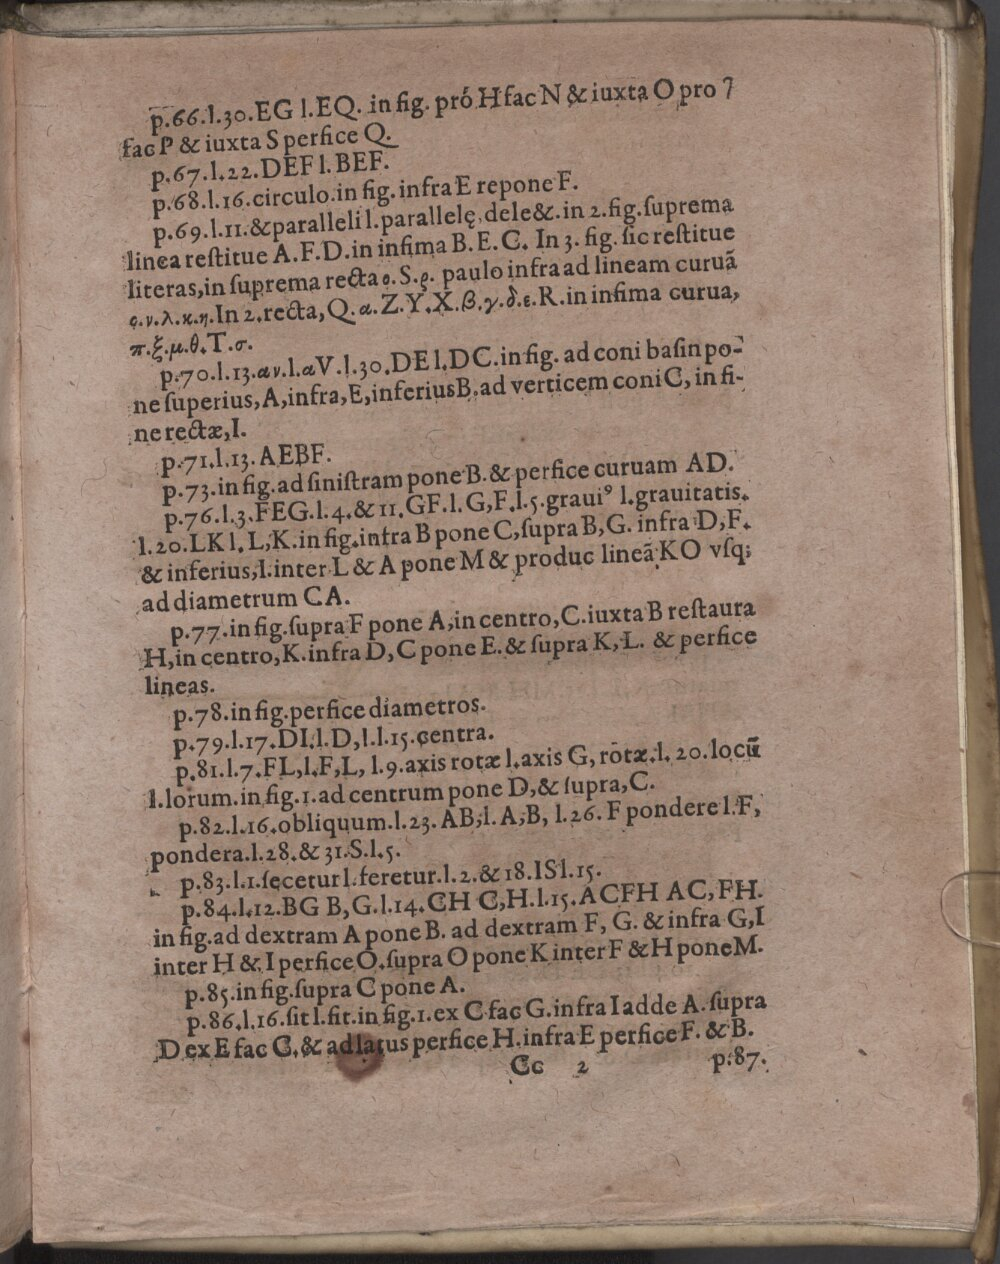 p.66.l.30.EG l.EQ. in fig. pró H fac N & iuxta O pro 7
fac P & iuxta S perfice Q.
p.67.l.22.DEF l.BEF.
p.68.l.16.circulo.in fig. infra E repone F.
p.69.l.11.& paralleli l.parallelę dele &.in 2.fig.ſuprema
linea reſtitue A.F.D.in infima B.E.C. In 3. fig. ſic reſtitue
literas,in ſuprema recta ο.S.ρ. paulo infra ad lineam curuã
ς.ν.λ.κ.η.In 2.recta,Q.α.Z.Y.X.β.γ.δ.ε.R.in infima curua,
π.ξ.μ.θ.T.σ.
p.70.l.13.αν.l.αV.l.30.DE l.DC.in fig. ad coni baſin po-
ne ſuperius,A,infra,E,inferius B,ad verticem coni C, in fi-
ne rectæ,I.
p.71.l.13.AEBF.
p.73.in fig.ad ſiniſtram pone B.& perfice curuam AD.
p.76.l.3.FEG.l.4.& 11.GF.l.G,F.l.5.grauiꝰ l.grauitatis.
l.20.LK l.L,K.in fig.infra B pone C,ſupra B,G. infra D,F.
& inferius,I.inter L & A pone M & produc lineã KO vſq;
ad diametrum CA.
p.77.in fig.ſupra F pone A,in centro,C.iuxta B reſtaura
H,in centro,K.infra D,C pone E.& ſupra K,L. & perfice
lineas.
p.78.in fig.perfice diametros.
p.79.l.17.DI.l.D,I.l.15.centra.
p.81.l.7.FL,l.F,L, l.9.axis rotæ l.axis G, rotæ.l. 20.locũ
l.lorum.in fig.1.ad centrum pone D,& ſupra,C.
p.82.l.16.obliquum.l.23. AB,l.A,B, l.26. F pondere l.F,
pondera.l.28.& 31.S.l.5.
p.83.l.1.ſecetur l.feretur.l.2.& 18.IS l.15.
p.84.l.12.BG B,G.l.14.CH C,H.l.15.ACFH AC,FH.
in fig.ad dextram A pone B. ad dextram F, G. & infra G,I
inter H & I perfice O.ſupra O pone K inter F & H pone M.
p.85.in fig.ſupra C pone A.
p.86.l.16.ſit l.fit.in fig.1.ex C fac G.infra I adde A.ſupra
D ex E fac C.& ad latus perfice H.infra E perfice F. & B.
Cc 2 p.87.